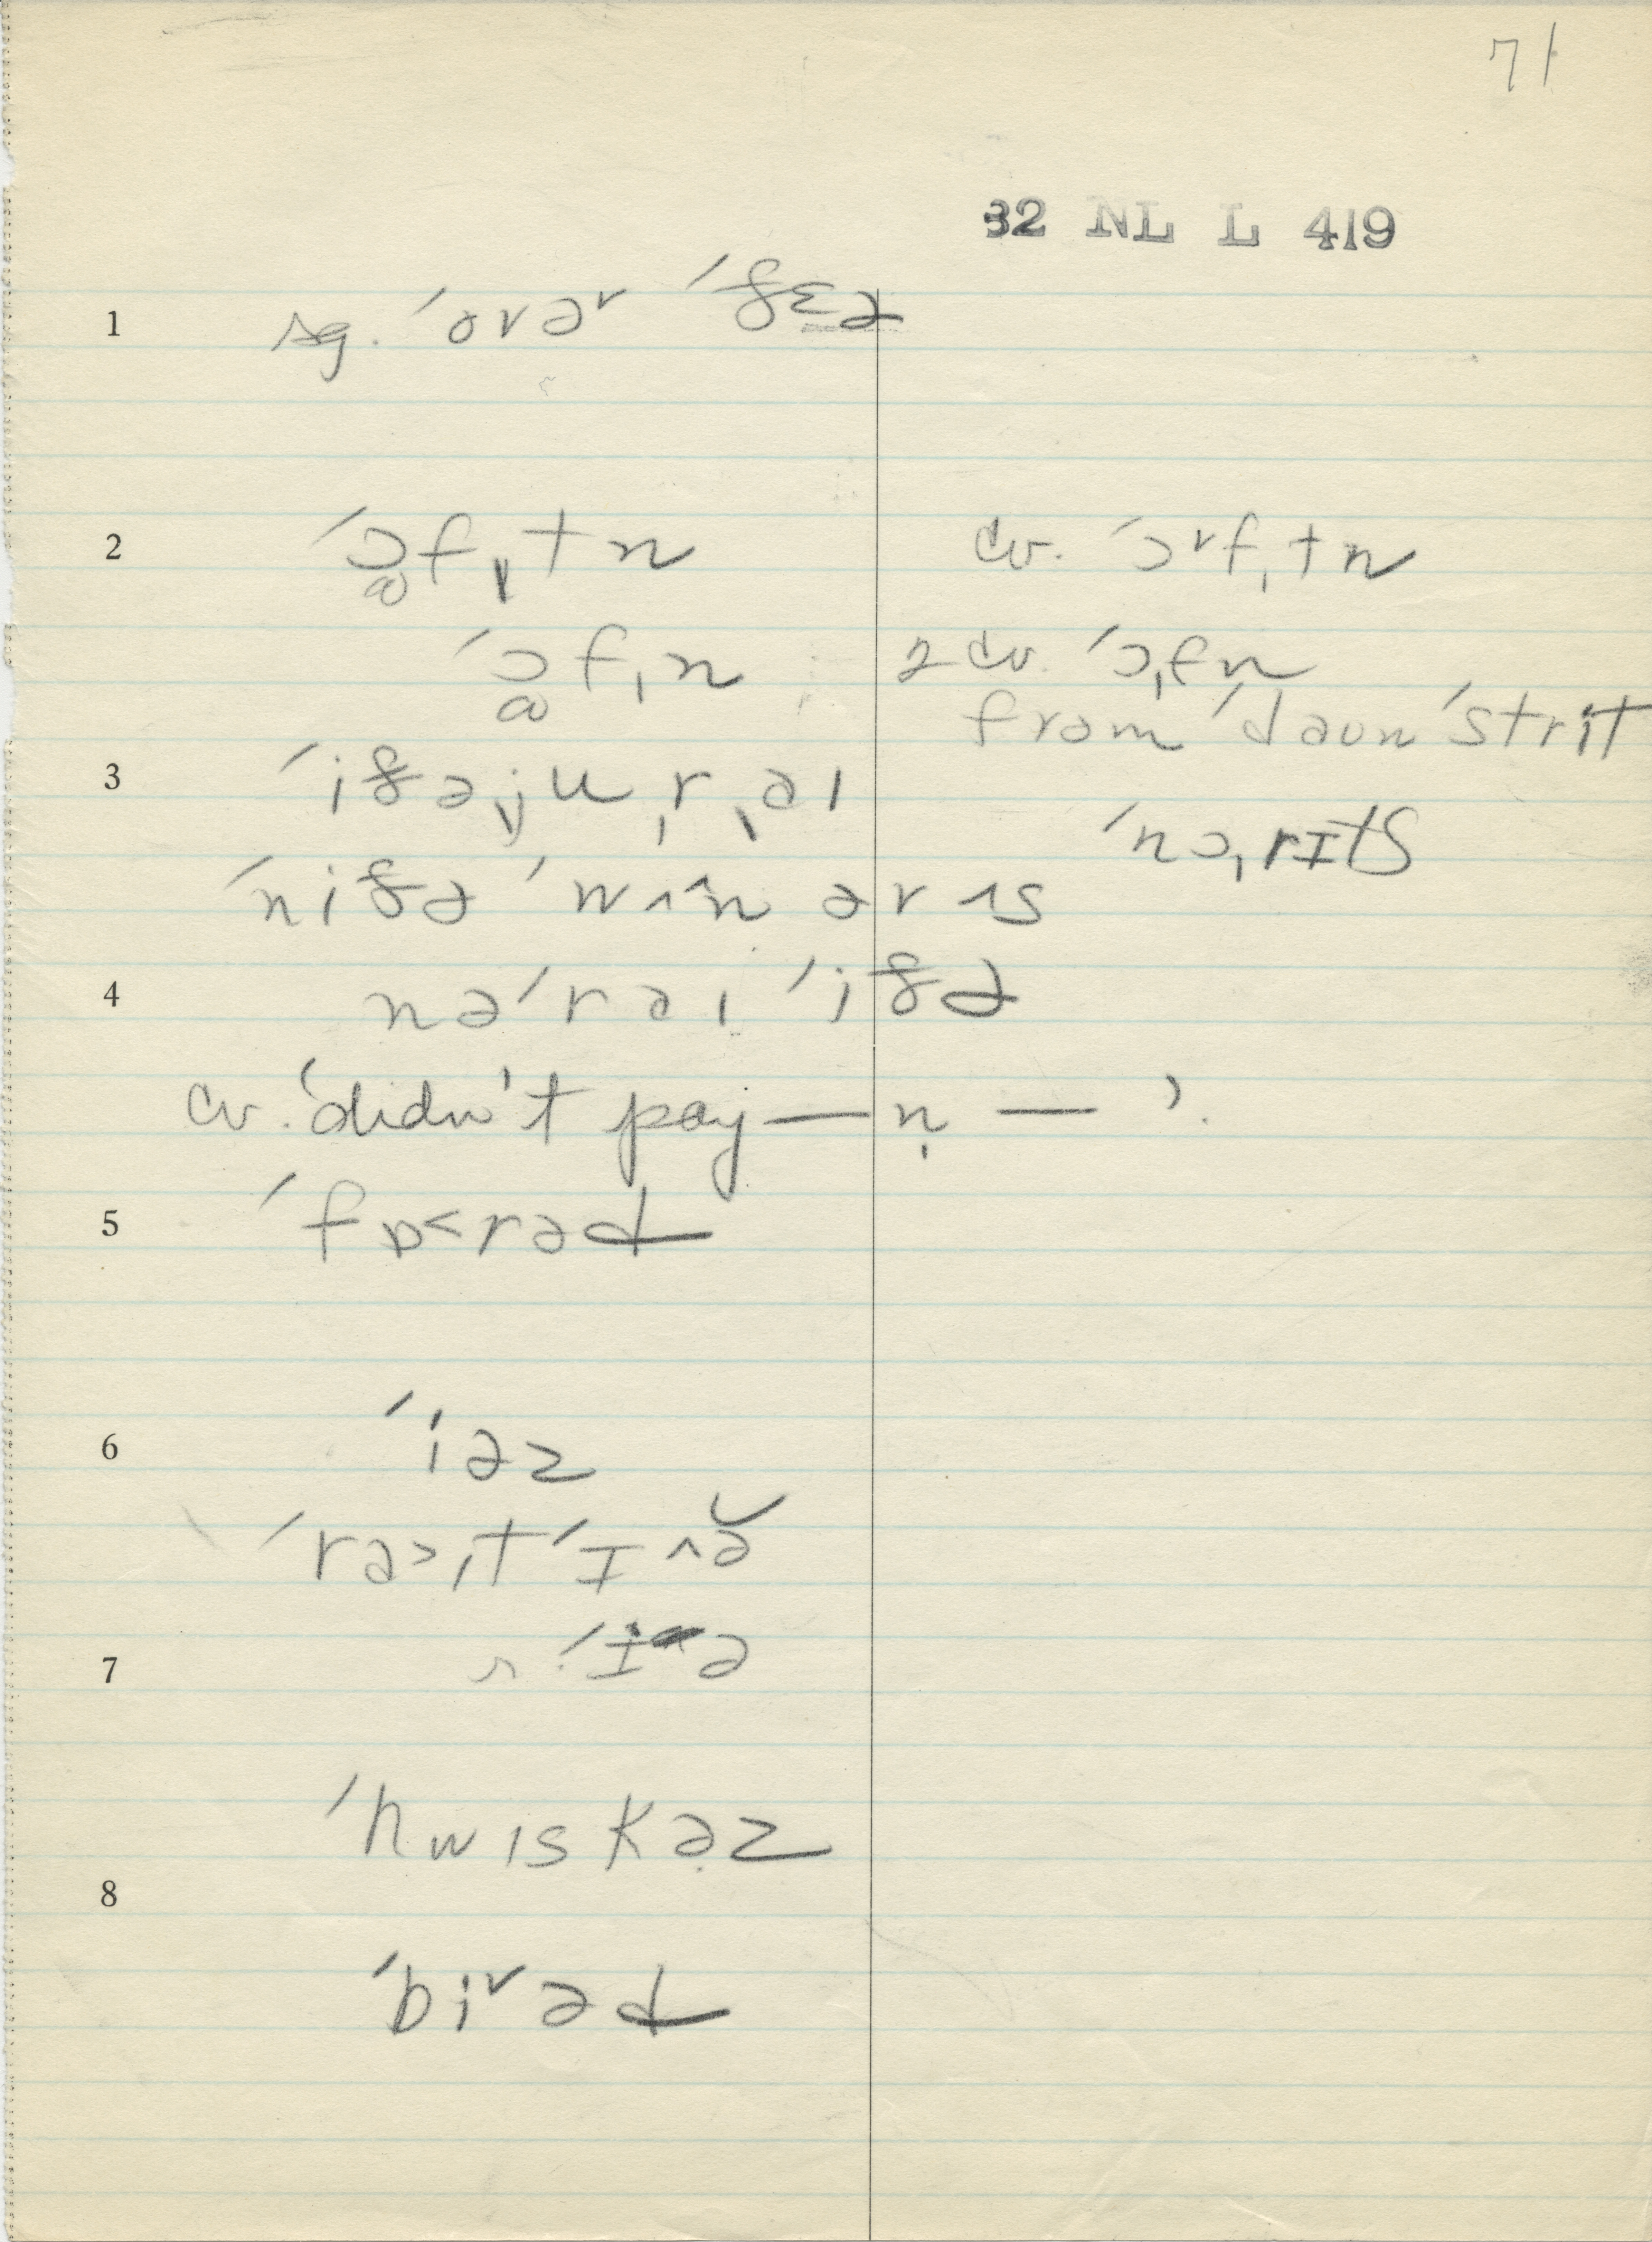 71
32 NL L 419
1 sg. ˈovəʳ ˈðɛə
2 ˈɔf ̩tn cv. ˈɔʳf ̩tn
ˈɔf ̩n 2 cv. ˈɔ ̩fn
frəm ˈdaʊn ˈstrit
3 ˈiðə ̩ju ̩r ̩əɪ
ˈnɔ ̩rɪts
ˈniðə ˈwʌn ər ʌs
4 nəˈrəɪ ˈiðə
cv. ˈdidn't pay — n̩ — ˀ.
5 ˈfɒ˂rəd
6 ˈiəz
ˈrə˃ɪt ˈɪ^ə̆
7 ˈɪə
ˈhwɪskə̣z
8 ˈbi˅əd